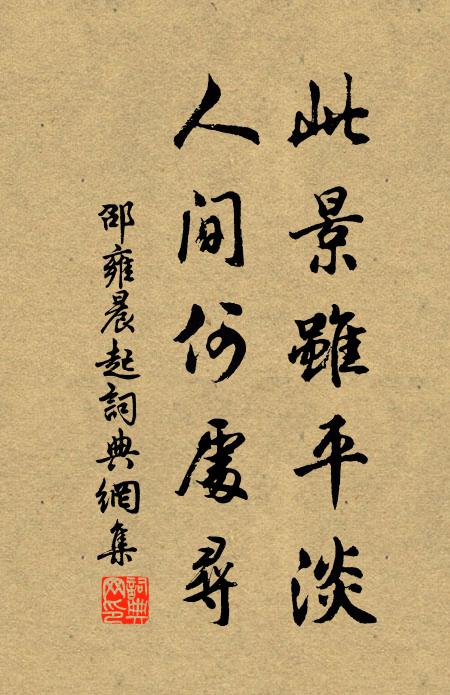 此景雖平淡
人間何處尋
邵雍晨起詞典網集
詞典網印